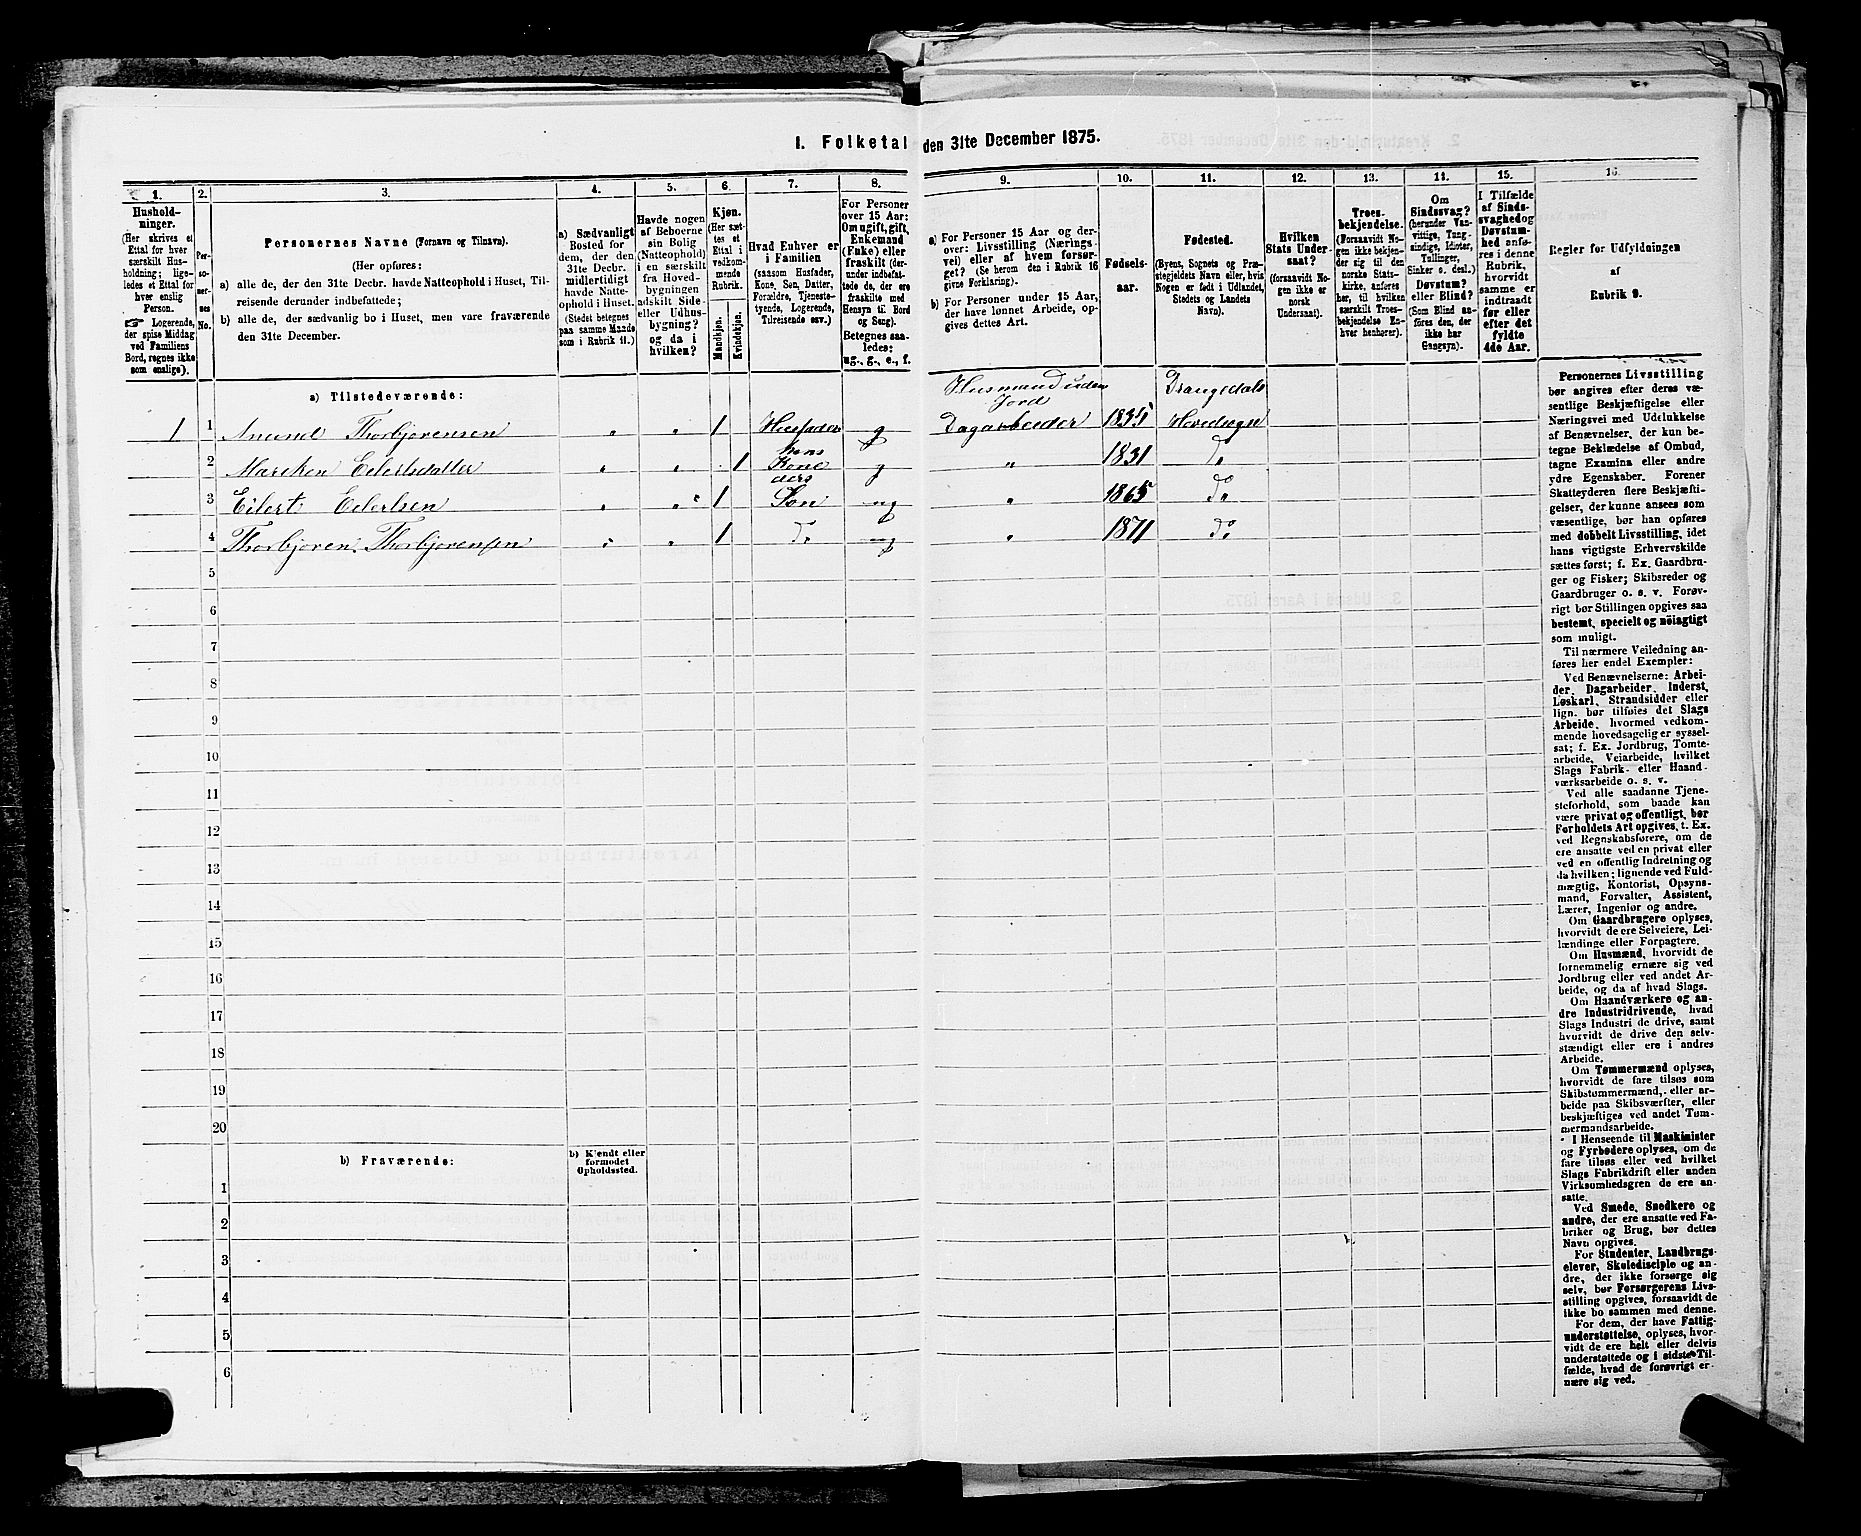 I. Folketal den 31te December 1875.
1.
2.
3.
4.
5.
6.
7.
8.
9.
10.
11.
12.
13.
14.
15.
16.
Husholdninger.
(Her skrives et
Ettal for hver
særskilt Husholdning; ligeledes
et Ettal for
hver enslig
Person.
Logerende,
der spise Middag
ved Familiens
Bord, regnes ikke
som enslige).
Personernes
No.
Personernes Navne (Fornavn og Tilnavn).
(Her opføres:
a) alle de, der den 31te Decbr. havde Natteophold i Huset, Tilreisende derunder indbefattede;
b) alle de, der sædvanlig bo i Huset, men vare fraværende
den 31te December.
a) Sædvanligt
Bosted for
dem, der den
31te Decbr.
midlertidigt
havde Natteophold i Huset.
(Stedet betegnes
paa samme Maade
som i Rubrik 11.)
Havde nogen
af Beboerne
sin Bolig
(Natteophold)
i en særskilt
fra Hovedbygningen
adskilt Side-
eller Udhusbygning?
og da i
hvilken?
Kjøn.
(Her sættes
et
Ettal i
vedkommende
Rubrik.
Mandkjøn.
Kvindekjøn.
Hvad Enhver er
i Familien
(saasom Husfader,
Kone, Søn, Datter,
Forældre, Tjenestetyende, Logerende,
Tilreisende osv.)
For Personer
over 15 Aar:
Om ugift, gift,
Enkemand
(Enke) eller
fraskilt (derunder indbefattede de, der ere
fraskilte med
Hensyn til Bord
og Seng).
Betegnes saaledes:
ug., g., e., f.
a) For Personer 15 Aar og derover: Livsstilling (Næringsvei) eller af hvem forsørget? (Se herom den i Rubrik 16
givne Forklaring).
b) For Personer under 15 Aar,
der have lønnet Arbeide, opgives dettes Art.
Fødselsaar.
Fødested.
(Byens, Sognets og Præstegjeldets Navn eller, hvis
Nogen er født i Udlandet,
Stedets og Landets
Navn).
Hvilken
Stats Undersaat?
(forsaavidt Nogen ikke er
norsk
Undersaat).
Troesbekjendelse.
(Forsaavidt Nogen ikke bekjender sig til den
norske Statskirke, anføres
her, til hvilken
særskilt Troesbekjendelse Enhver henhører).
Om
Sindssvag?
(herunder Vanvittige, Tungsindige, Idioter,
Tullinger,
Sinker o. desl.)
Døvstum?
eller Blind?
(Som Blind anføres den, der
ikke har
Gangsyn).
I Tilfælde
af Sindssvaghed og
Døvstumhed anføres i denne
Rubrik,
hvorvidt
samme er
indtraadt
før eller
efter det
fyldte
4de Aar.
Regler for Udfyldningen
af
Rubrik 9.
a) Tilstedeværende:
Husmand uden
Jord
Drangedals
1 1 Anund Thorbjørensen " " 1 Husfader g Dagarbeider 1835 Hovedsogn
hans
2 Mareken Eilertsdatter " " 1 Kone g " 1831 Do
ders
3 Eilert Eilertsen " " 1 Søn ug " 1865 Do
4 Thorbjøren Thorbjørensen " " 1 Do ug " 1871 Do
5
6
7
8
9
10
11
12
13
14
15
16
17
18
19
20
b) Fraværende:
b) Kjendt eller
formodet
Opholdssted.
1
2
3
4
5
6
Personernes Livsstilling
bør angives efter deres væsentlige Beskjæftigelse eller
Næringsvei med Udelukkelse
af Benævnelser, der kun betegne Beklædelse af Ombud,
tagne Examina eller andre
ydre Egenskaber. Forener
Skatteyderen flere Beskjæftigelser, der kunne ansees som
væsentlige, bør han opføres
med dobbelt Livsstilling, idet
hans vigtigste Erhvervskilde
sættes først; f. Ex. Gaardbruger og Fisker; Skibsreder og
Gaardbruger o. s. v. Forøvrigt bør Stillingen opgives saa
bestemt, specielt og nöiagtigt
som muligt.
Til nærmere Veiledning anføres her endel Exempler:
Ved Benævnelserne: Arbeider, Dagarbeider, Inderst,
Løskarl, Strandsidder eller
lign. bør tilføies det Slags
Arbeide, hvormed vedkommende hovedsagelig er sysselsat; f. Ex. Jordbrug, Tomtearbeide, Veiarbeide, hvilket
Slags Fabrik- eller Haandværksarbeide o. s. v.
Ved alle saadanne Tjenesteforhold, som baade kan
være privat og offentligt, bør
Forholdets Art opgives, t. Ex.
ved Regnskabsførere, om de
ere ansatte ved en privat eller
ved en offentlig Indretning og
da hvilken; lignende ved Fuldmægtig, Kontorist, Opsynsmand, Forvalter, Assistent,
Lærer, Ingeniør og andre.
Om Gaardbrugere oplyses,
hvorvidt de ere Selveiere, Leilændinge eller Forpagtere.
Om Husmænd, hvorvidt de
fornemmelig ernære sig ved
Jordbrug eller ved andet Arbeide, og da af hvad Slags.
Om Haandværkere og andre Industridrivende, hvad
Slags Industri de drive, samt
hvorvidt de drive den selvstændigt eller ere i andres
Arbeide.
Om Tømmermænd oplyses,
hvorvidt de fare tilsøs som
Skibstømmermænd, eller arbeide paa Skibsværfter, eller
beskjæftiges ved andet Tømmermandsarbeide.
I Henseende til Maskinister
og Fyrbødere oplyses, om de
fare tilsøs eller ved hvilket
Slags Fabrikdrift eller anden
Virksomhedsgren de ere ansatte.
Ved Smede, Snedkere og
andre, der ere ansatte ved Fabriker og Brug, bør dettes
Navn opgives.
For Studenter, Landbrugselever, Skoledisciple og andre, der ikke forsørge sig
selv, bør Forsørgerens Livsstilling opgives, forsaavidt de
ikke bo sammen med denne.
For dem, der have Fattigunderstøttelse, oplyses, hvorvidt de ere helt eller delvis
understøttede og i sidste Tilfælde, hvad de forøvrigt ernære sig ved.